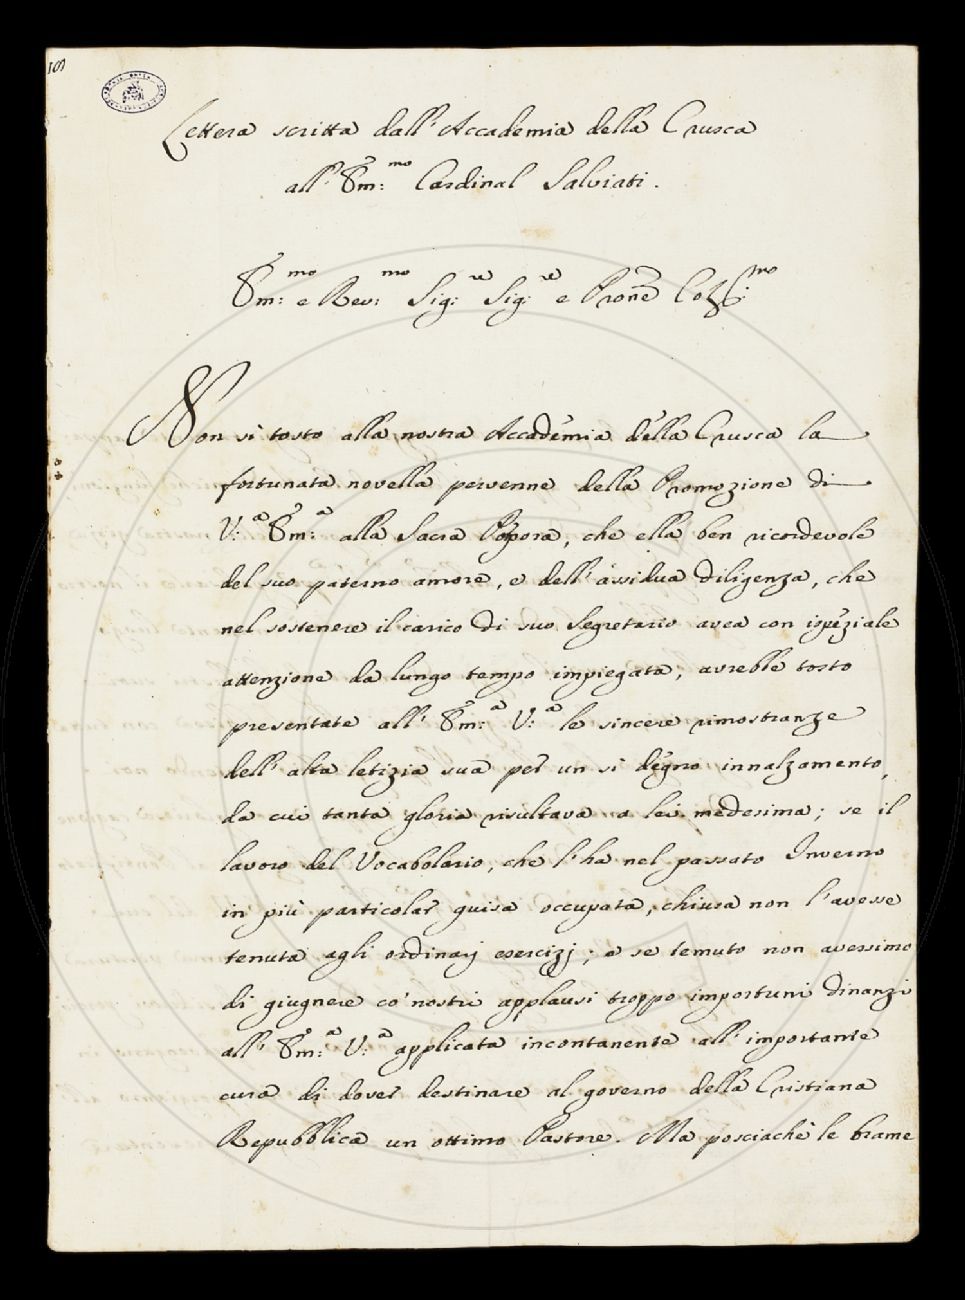 Lettera scritta dall' Accademia della Crusca
all' Em:mo Cardinal Salviati.
Em:mo e Rev:mo Sig:re Sig:re e Prone Col:mo
Non sì tosto alla nostra Accademia della Crusca la
fortunata novella pervenne della Promozione di
V:a Em:a alla Sacra Porpora, che ella ben ricordevole
del suo paterno amore, e dell' assidua diligenza, che
nel sostenere il carico di suo Segretario avea con ispeziale
attenzione da lungo tempo impiegata; avrebbe tosto
presentate all' Em:a V:a le sincere rimostranze
dell' alta letizia sua per un sì degno innalzamento,
da cui tanta gloria risultava a lei medesima; se il
lavoro del Vocabolario, che l' ha nel passato Inverno
in più particolar guisa occupata, chiusa non l' avesse
tenuta agli ordinarj esercizj; e se temuto non avessimo
di giugnere co' nostri applausi troppo importuni dinanzi
all' Em:a V:a applicata incontanente all' importante
cura di dover destinare al governo della Cristiana
Repubblica un ottimo Pastore. Ma posciachè le brame